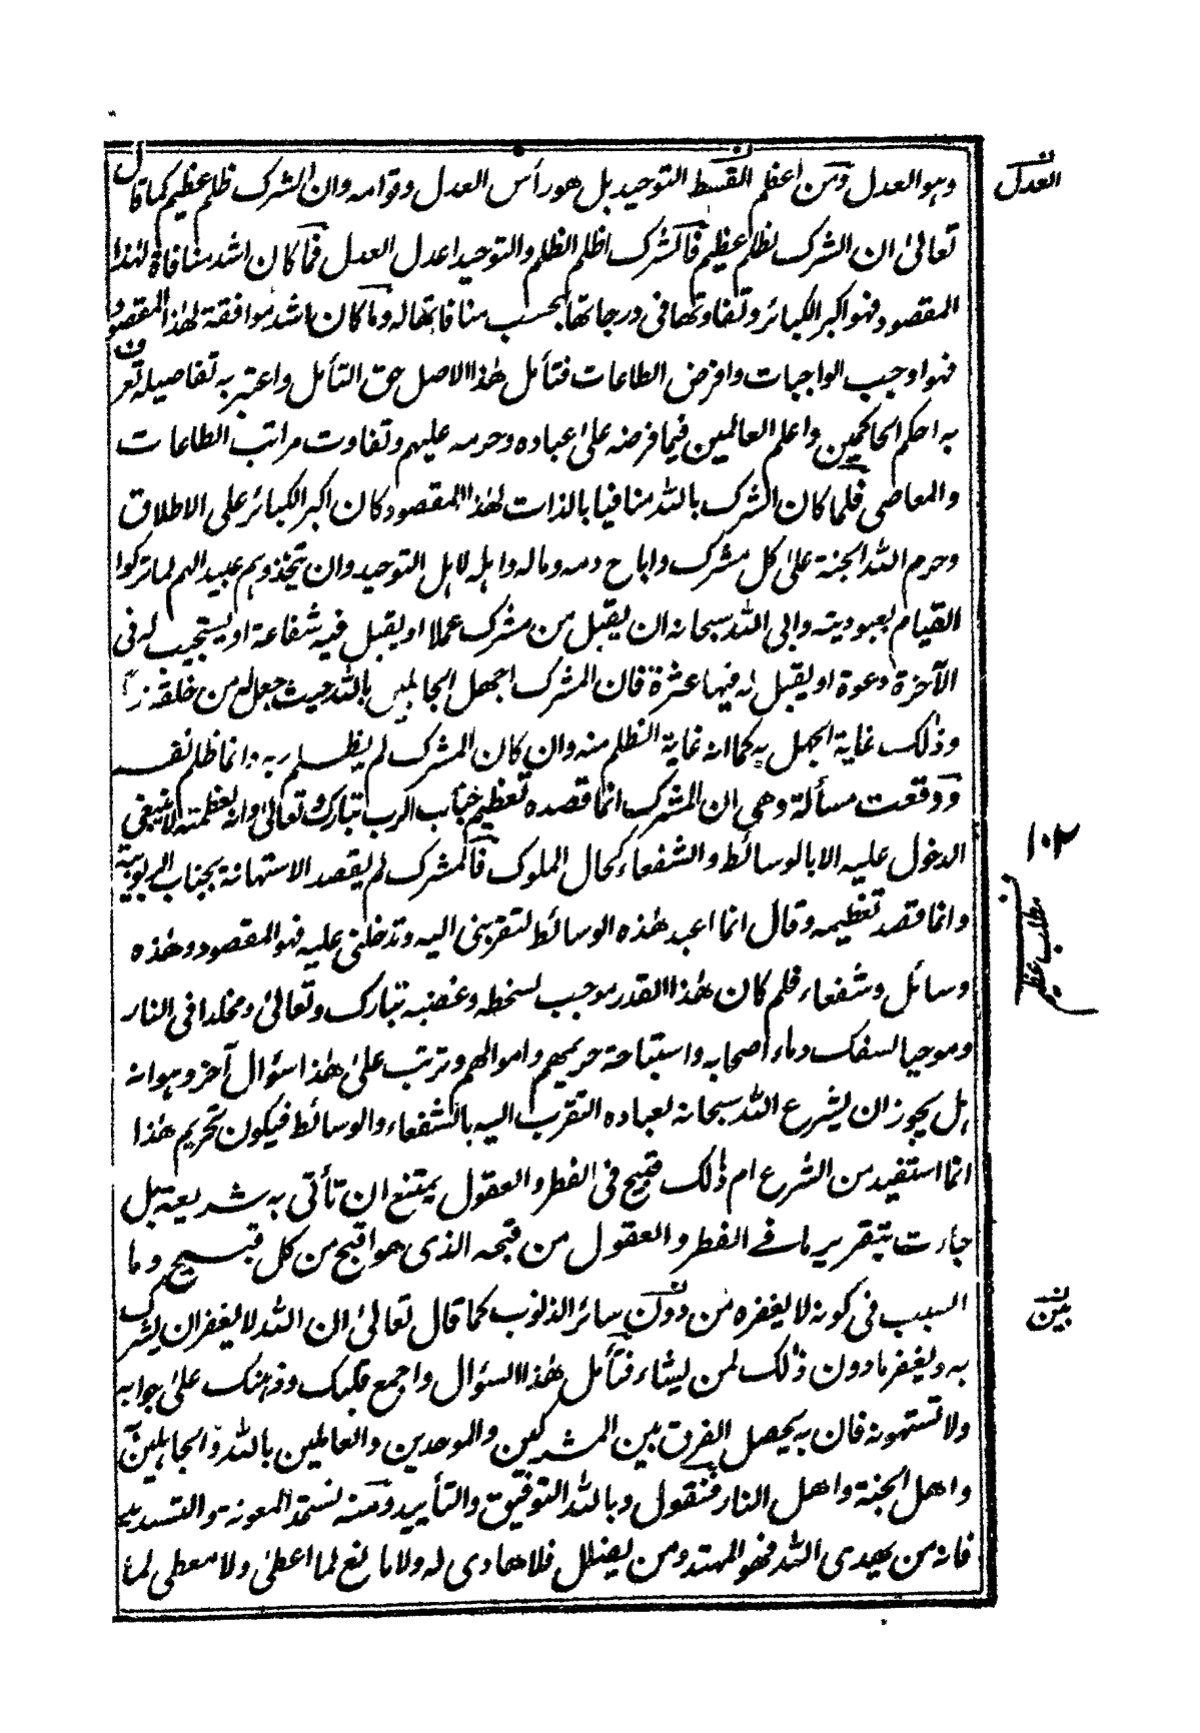 وهو العدل ومن اعظم القسط التوحيد بل هو رأس العدل وقوامه وان الشرك ظلم عظيم كما قال
العدل
تعالى ان الشرك لظلم عظيم فالشرك اظلم الظلم والتوحيد اعدل العدل فما كان اشد منافاة لهذا
المقصود فهو اكبر الكبائر وتفاوتها في درجاتها بحسب منافاتها له وما كان اشد موافقة لهذا المقصود
فهو اوجب الواجبات وافرض الطاعات فتأمل هذا الاصل حق التأمل واعتبر به تفاصيله تعرف
به احكم الحاكمين واعلم العالمين فيما فرضه على عباده وحرمه عليهم وتفاوت مراتب الطاعات
والمعاصي فلما كان الشرك بالله منافيا بالذات لهذا المقصود كان اكبر الكبائر على الاطلاق
وحرم الله الجنة على كل مشرك واباح دمه وماله واهله لاهل التوحيد وان يتخذوهم عبيدا لهم لما تركوا
القيام بعبوديته وابى الله سبحانه ان يقبل من مشرك عملا او يقبل فيه شفاعة او يستجيب له في
الآخرة دعوة او يقبل له فيها عثرة فان المشرك اجهل الجاهلين بالله حيث جعل له من خلقه ندا
وذلك غاية الجهل به كما انه غاية الظلم منه وان كان المشرك لم يظلم ربه وانما ظلم نفسه
ووقعت مسألة وهي ان المشرك انما قصده تعظيم جناب الرب تبارك وتعالى وانه لعظمته لا ينبغي
الدخول عليه الا بالوسائط والشفعاء كحال الملوك فالمشرك لم يقصد الاستهانة بجناب الربوبية
١٠٢
وانما قصد تعظيمه وقال انما اعبد هذه الوسائط لتقربني اليه وتدخلني عليه فهو المقصود وهذه
مطلب عظيم
وسائل وشفعاء فلم كان هذا القدر موجب لسخطه وغضبه تبارك وتعالى ومخلدا في النار
وموجبا لسفك دماء اصحابه واستباحة حريمهم واموالهم وترتب على هذا سؤال آخر وهو انه
هل يجوز ان يشرع الله سبحانه لعباده التقرب اليه بالشفعاء والوسائط فيكون تحريم هذا
انما استفيد من الشرع ام ذلك قبيح في الفطر والعقول يمتنع ان تأتي به شريعة بل
جاءت بتقرير ما في الفطر والعقول من قبحه الذي هو اقبح من كل قبيح وما
السبب في كونه لا يغفره من دون سائر الذنوب كما قال تعالى ان الله لا يغفر ان يشرك
بين
به ويغفر ما دون ذلك لمن يشاء فتأمل هذا السؤال واجمع قلبك وذهنك على جوابه
ولا تستهونه فان به يحصل الفرق بين المشركين والموحدين والعالمين بالله والجاهلين به
واهل الجنة واهل النار فنقول وبالله التوفيق والتأييد ومنه نستمد المعونة والتسديد
فانه من يهدي الله فهو المهتد ومن يضلل فلا هادي له ولا مانع لما اعطى ولا معطي لما